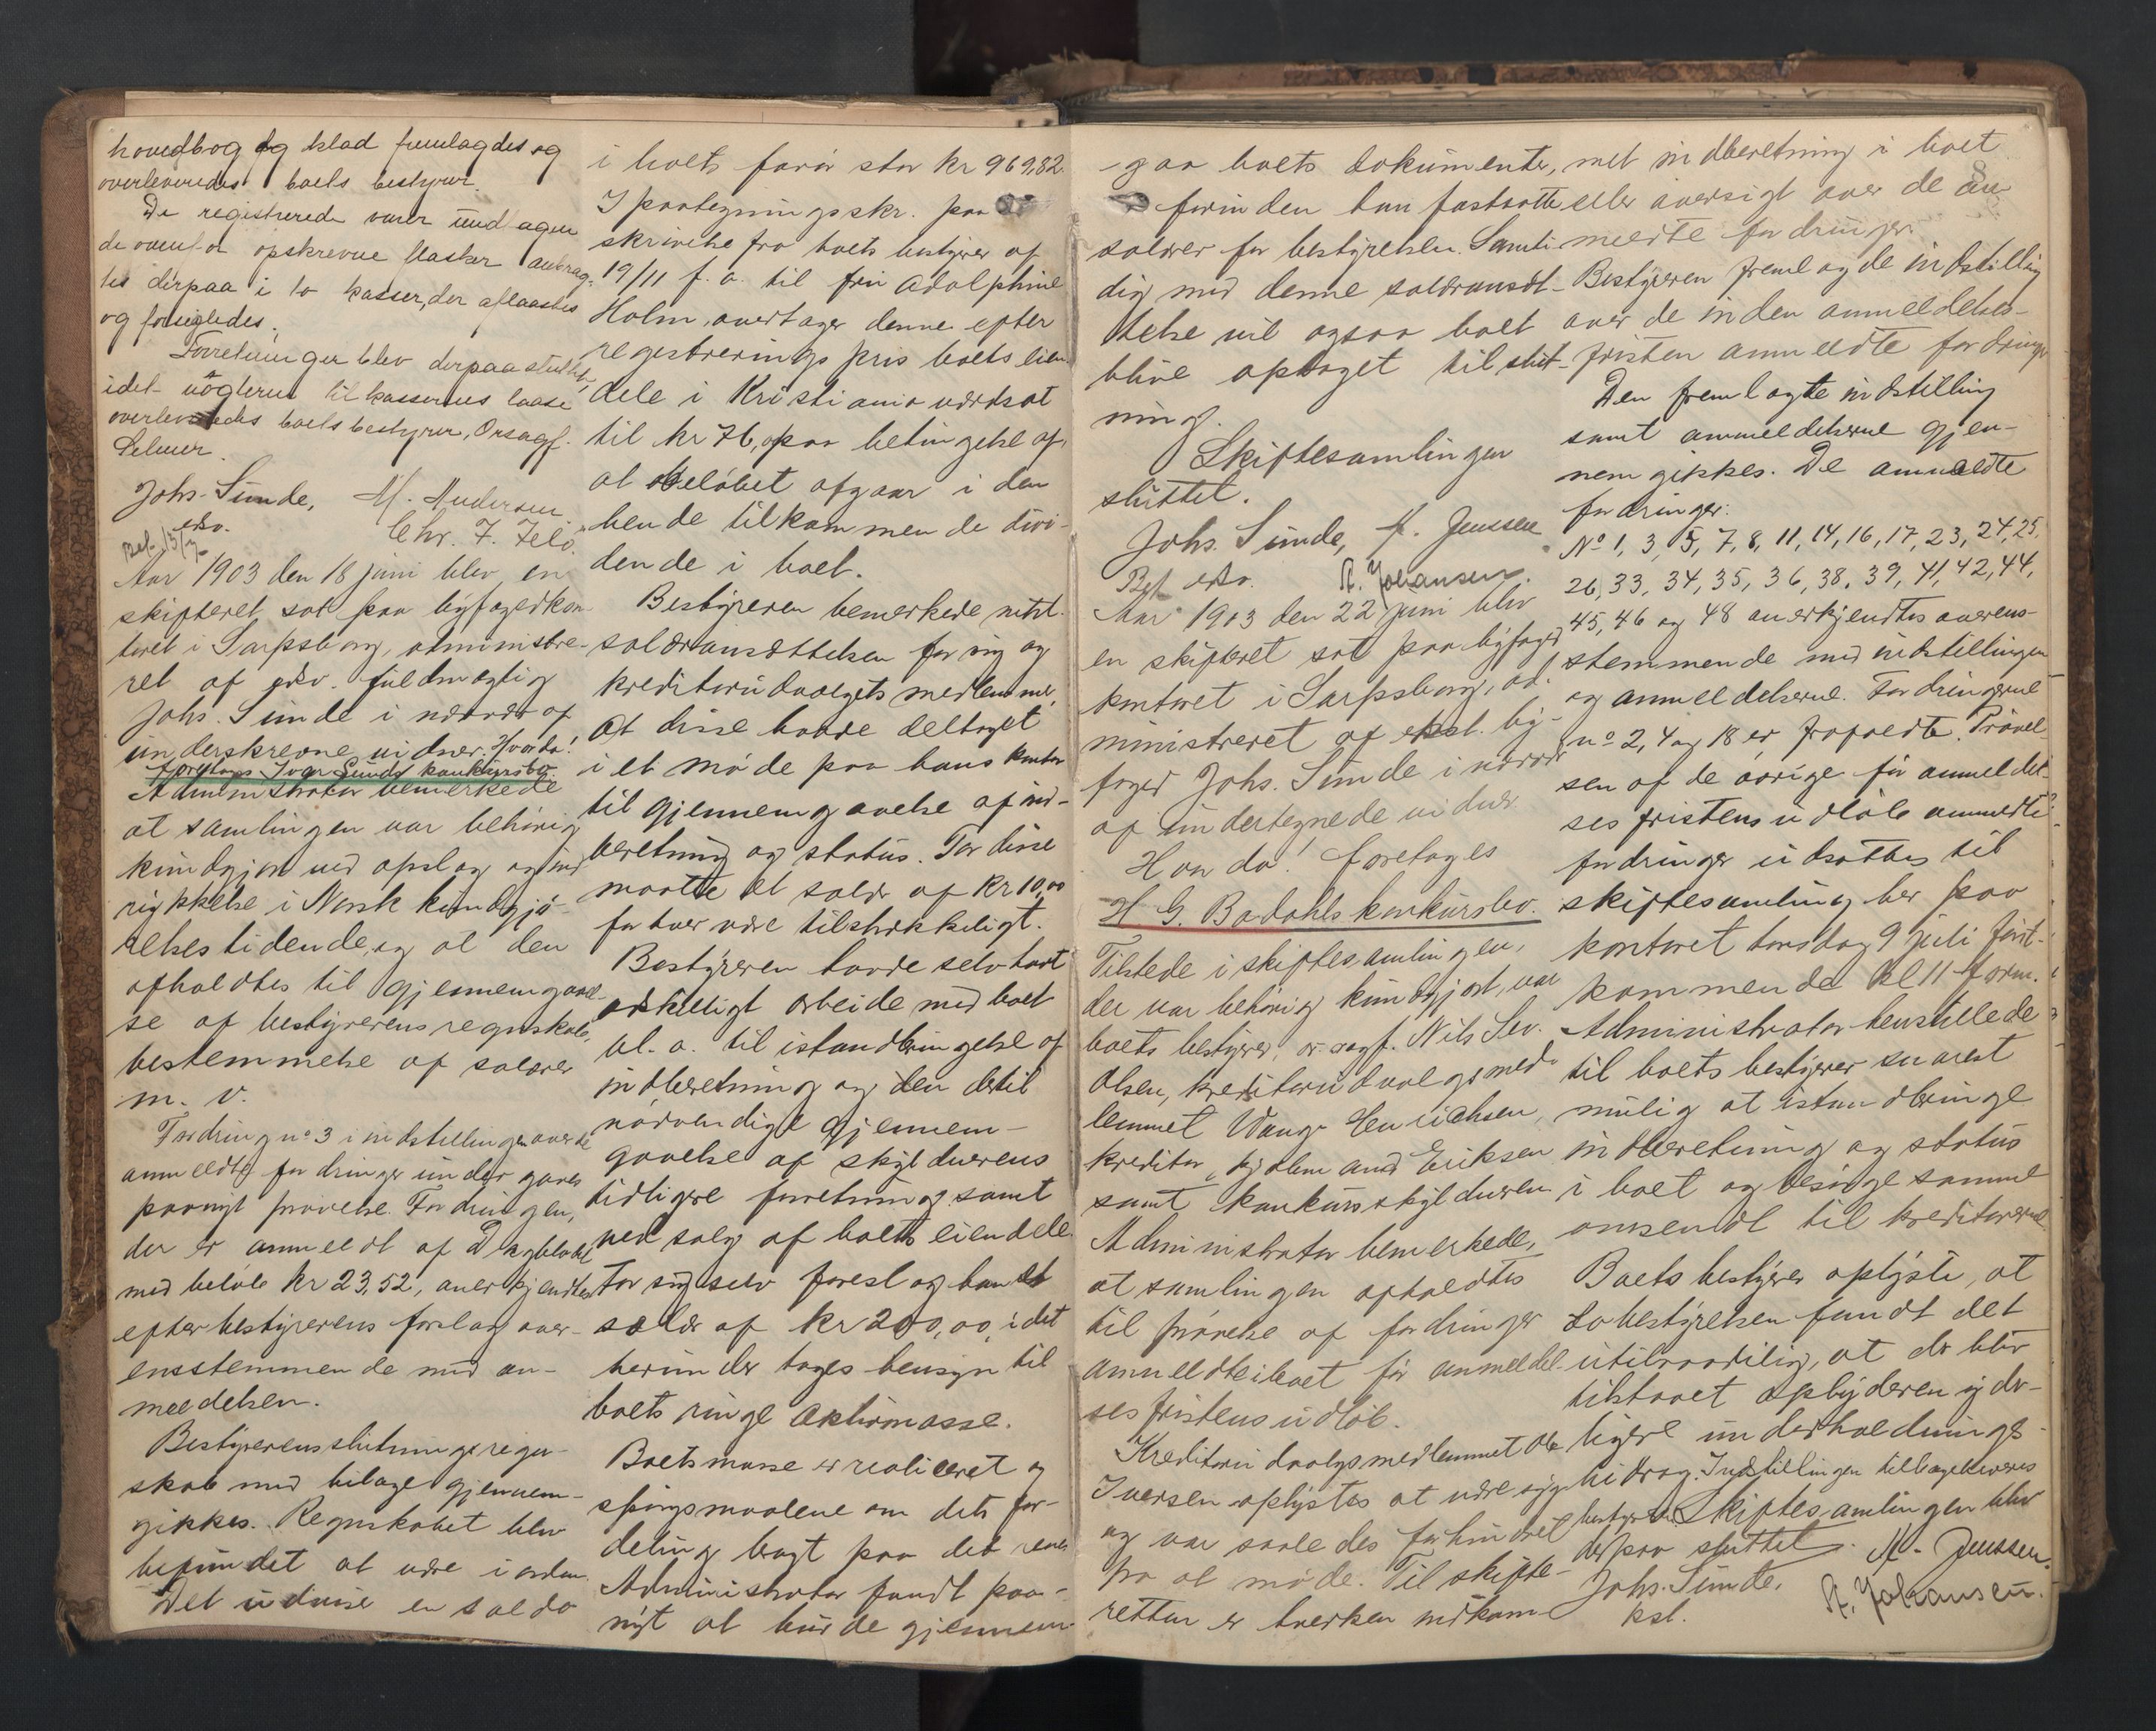 hovedbog og klad fremlagdes og
overleveredes boets bestyrer.
De registrerede varer undtagen
de ovenfor opskrevne flasker anbrag-
tes derpaa i to kasser, der aflaastes
og forsegledes.
Forretningen blev derpaa sluttet,
idet nøglerne til kassernes laase
overleveredes boets bestyrer, Orsagf.
Selmer.
Johs. Sunde, M. Andersen
edsv. Chr. F.
Bet. 15/7
Aar 1903 den 18 juni blev en
skifteret sat paa byfogedkon-
toret i Sarpsborg, administre-
ret af edsv. fuldmægtig
Johs. Sunde i nærvær af
underskrevne vidner. Hvorda!
Foretoges Ivar Sunds konkursbo.
Administrator bemerkede
at samlingen var behørig
kundgjort ved opslag og ind-
rykkelse i Norsk kundgjø-
relsestidende, og at den
afholdtes til gjennemgaael-
se af bestyrerens regnskab,
bestemmelse af salærer
m. v.
Fordring no 3 i indstillingen over de
anmeldte fordringer undergaves
paanyt prøvelse. Fordringen,
der er anmeldt af Dagbladet
med beløb kr 23,52, anerkjendtes
efter bestyrerens forslag over-
ensstemmende med an-
meldelsen.
Bestyrerens slutningsregn-
skab med bilage gjennem-
gikkes. Regnskabet blev
befundet at være i orden.
Det udviser en saldo
i boets favør stor kr 969,82.
I paategningsskr. paa
skrivelse fra boets bestyrer af
19/11 f. a. til fru Adolphine
Holm, overtager denne efter
registreringspris boets eien-
dele i Kristiania værdsat
til kr 76, paa betingelse af,
at beløbet afgaar i den
hende tilkommende divi-
dende i boet.
Bestyreren bemerkede vedst.
salæransættelsen for sig og
kreditorudvalgets medlemmer,
at disse havde deltaget
i et møde paa hans kontor
til gjennemgaaelse af ind-
beretning og status. For disse
maatte et salær af kr 10,00
for hver være tilstrækkeligt.
Bestyreren havde selv havt
adskilligt arbeide med boet
bl. a. til istandbringelse af
indberetning og den dertil
nødvendige gjennem-
gaaelse af skyldnerens
tidligere forretning samt
ved salg af boets eiendele.
For sig selv foreslog han et
salær af kr 200,00, idet
herunder toges hensyn til
boets ringe aktivmasse.
Boets masse er realiseret og
spørgsmaalene om dets for-
deling bragt paa det rene.
Administrator fandt paa-
nyt at burde gjennem-
gaa boets dokumenter,
forinden han fastsatte
salærer for bestyrelsen. Samti-
dig med denne salæransæt-
telse vil ogsaa boet
blive optaget til slut-
ning.
Skiftesamlingen
sluttet.
Johs. Sunde, M. Jenssen
Bet edsv. A. Johansen.
Aar 1903 den 22 juni blev
en skifteret sat paa byfoged-
kontoret i Sarpsborg, ad-
ministreret af kst. by-
foged Johs. Sunde i nærvær
af undertegnede vidner
Hvorda! foretoges
H G. Bodahls konkursbo.
Tilstede i skiftesamlingen,
der var behørig kundgjort, var
boets bestyrer, or. sagf. Nils Sev.
Olsen, kreditorudvalgsmed-
lemmet Wang Henrichsen,
kreditor, kjøbmand Eriksen
samt konkursskyldneren.
Administrator bemerkede,
at samlingen afholdtes
til prøvelse af fordringer
anmeldte i boet før anmeldel-
sesfristens udløb.
Kreditorudvalgsmedlemmet Ole
Iversen oplystes at være syg
og var saaledes forhindret
fra at møde. Til skifte-
retten er hverken indkom-
met indberetning i boet
eller oversigt over de an-
meldte fordringer.
Bestyreren fremlagde indstilling
over de inden anmeldelses-
fristen anmeldte fordringer
Den fremlagte indstilling
samt anmeldelserne gjen-
nemgikkes. De anmeldte
fordringer:
No 1, 3, 5, 7, 8, 11, 14, 16, 17, 23, 24, 25,
26, 33, 34, 35, 36, 38, 39, 41, 42, 44,
45, 46 og 48 anerkjendtes overens-
stemmende med indstillingen
og anmeldelserne. Fordringerne
no 2, 4 og 18 er frafaldte. Prøvel-
sen af de øvrige før anmeldel-
sesfristens udløb anmeldte
fordringer udsattes til
skiftesamling her paa
kontoret torsdag 9 juli først-
kommende kl 11 form.
Administrator henstillede
til boets bestyrer snarest
mulig at istandbringe
indberetning og status
i boet og besørge samme
omsendt til kreditorerne
Boets bestyrer oplyste, at
bobestyrelsen fandt det
utilraadelig, at der blev
tilstaaet opbyderen yder-
ligere underholdnings-
bidrag. Indstillingen tilbageleveres
bestyrer. Skiftesamlingen blev
derpaa sluttet.
Johs. Sunde, M. Jenssen.
kst. A. Johansen.